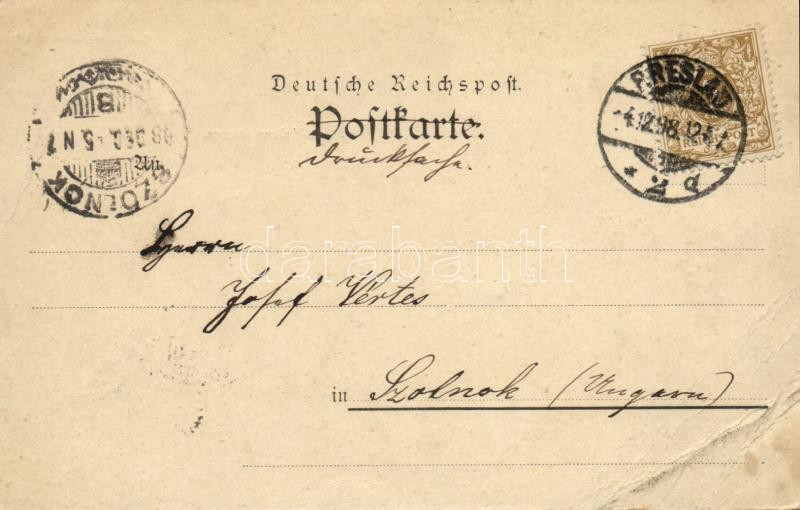 Deutsche Reichspost.
Postkarte.
Drucksache.
An
Herrn
Josef Vértes
in Szolnok (Ungarn)
BRESLAU
4.12.98.12-1
* 2 d
SZOLNOK
98 DEC. 5. N
B
REICHSPOST
darabanth